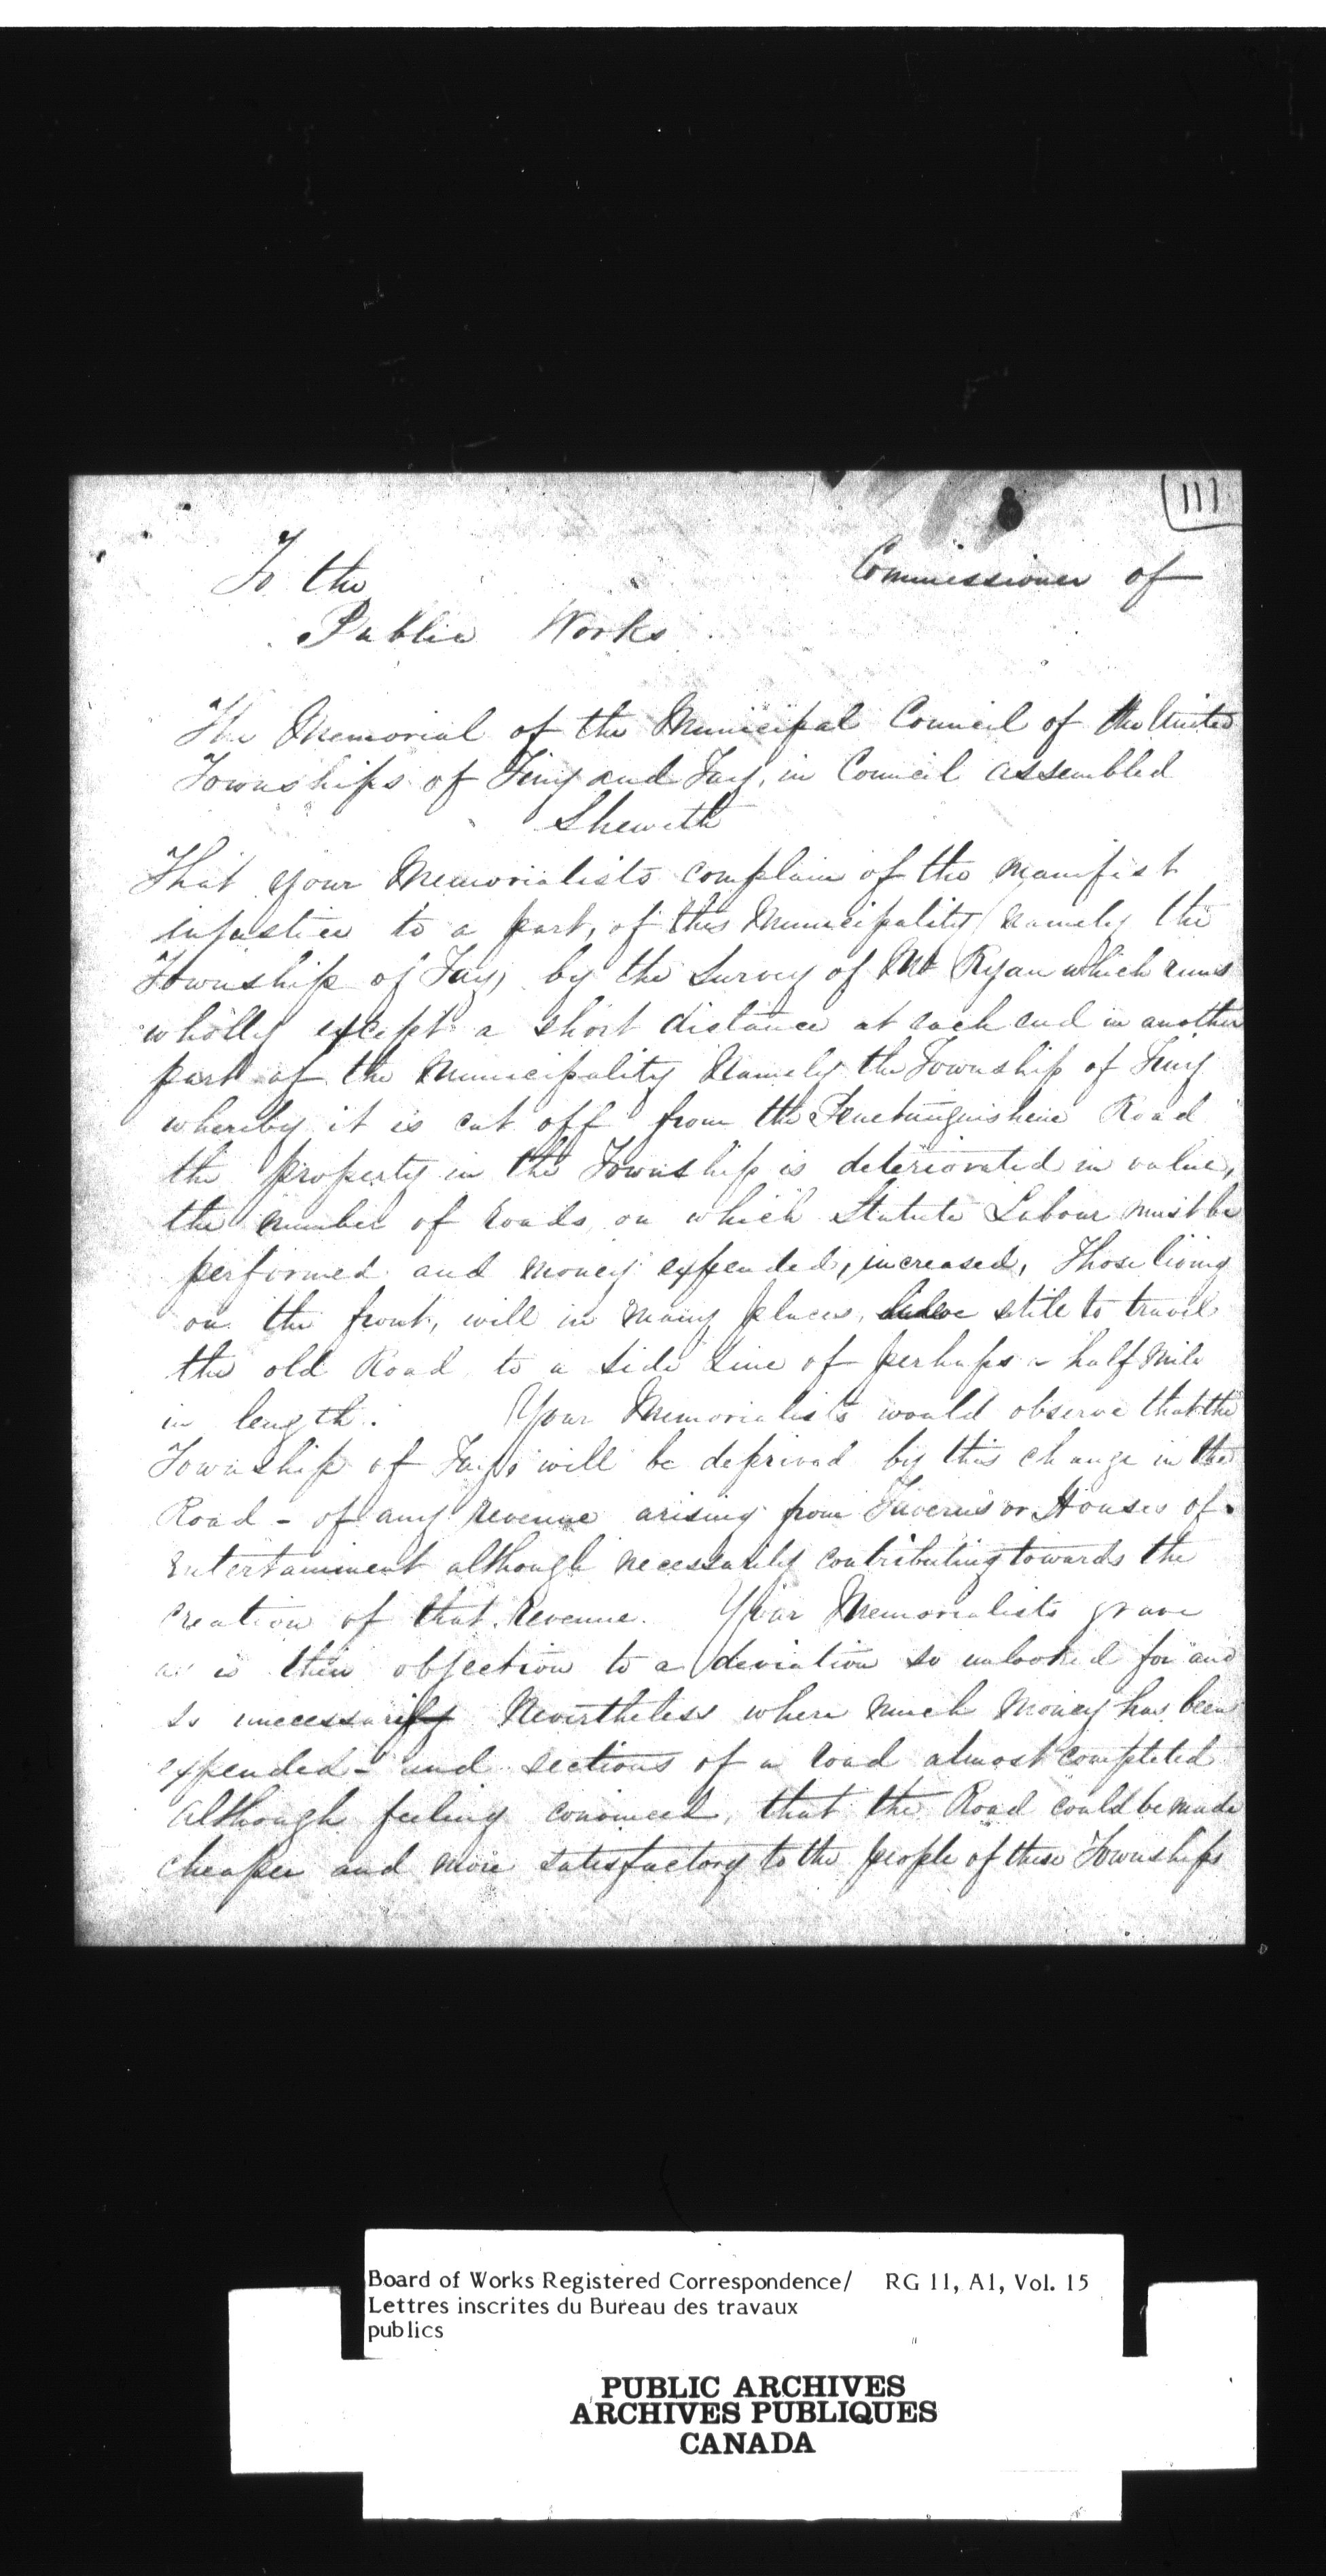 111
To the Commissioner of
Public Works
The Memorial of the Municipal Council of the United
Townships of Tiny and Tay, in Council assembled
Sheweth
That your Memorialists complain of the manifest
injustice to a part, of this Municipality (namely the
Township of Tay) by the Survey of Mr Ryan which runs
wholly except a short distance at each end in another
part of the Municipality Namely the Township of Tiny
whereby it is cut off from the Penetanguishene Road
the property in the Township is deteriorated in value,
the number of roads on which Statute Labour must be
performed and money expended, increased, Those living
on the front, will in many places, have still to travel
the old Road to a side line of perhaps a half mile
in length. Your Memorialists would observe that the
Township of Tay will be deprived by this change in the
Road - of any revenue arising from Taverns or Houses of
Entertainment although necessarily contributing towards the
creation of that Revenue. Your Memorialists grave
as is their objection to a deviation so unlooked for and
so unecessarily Nevertheless where much money has been
expended - and sections of a road almost completed
Although feeling convinced, that the Road could be made
cheaper and more satisfactory to the people of these Townships
Board of Works Registered Correspondence/ RG 11, A1, Vol. 15
Lettres inscrites du Bureau des travaux
publics
PUBLIC ARCHIVES
ARCHIVES PUBLIQUES
CANADA